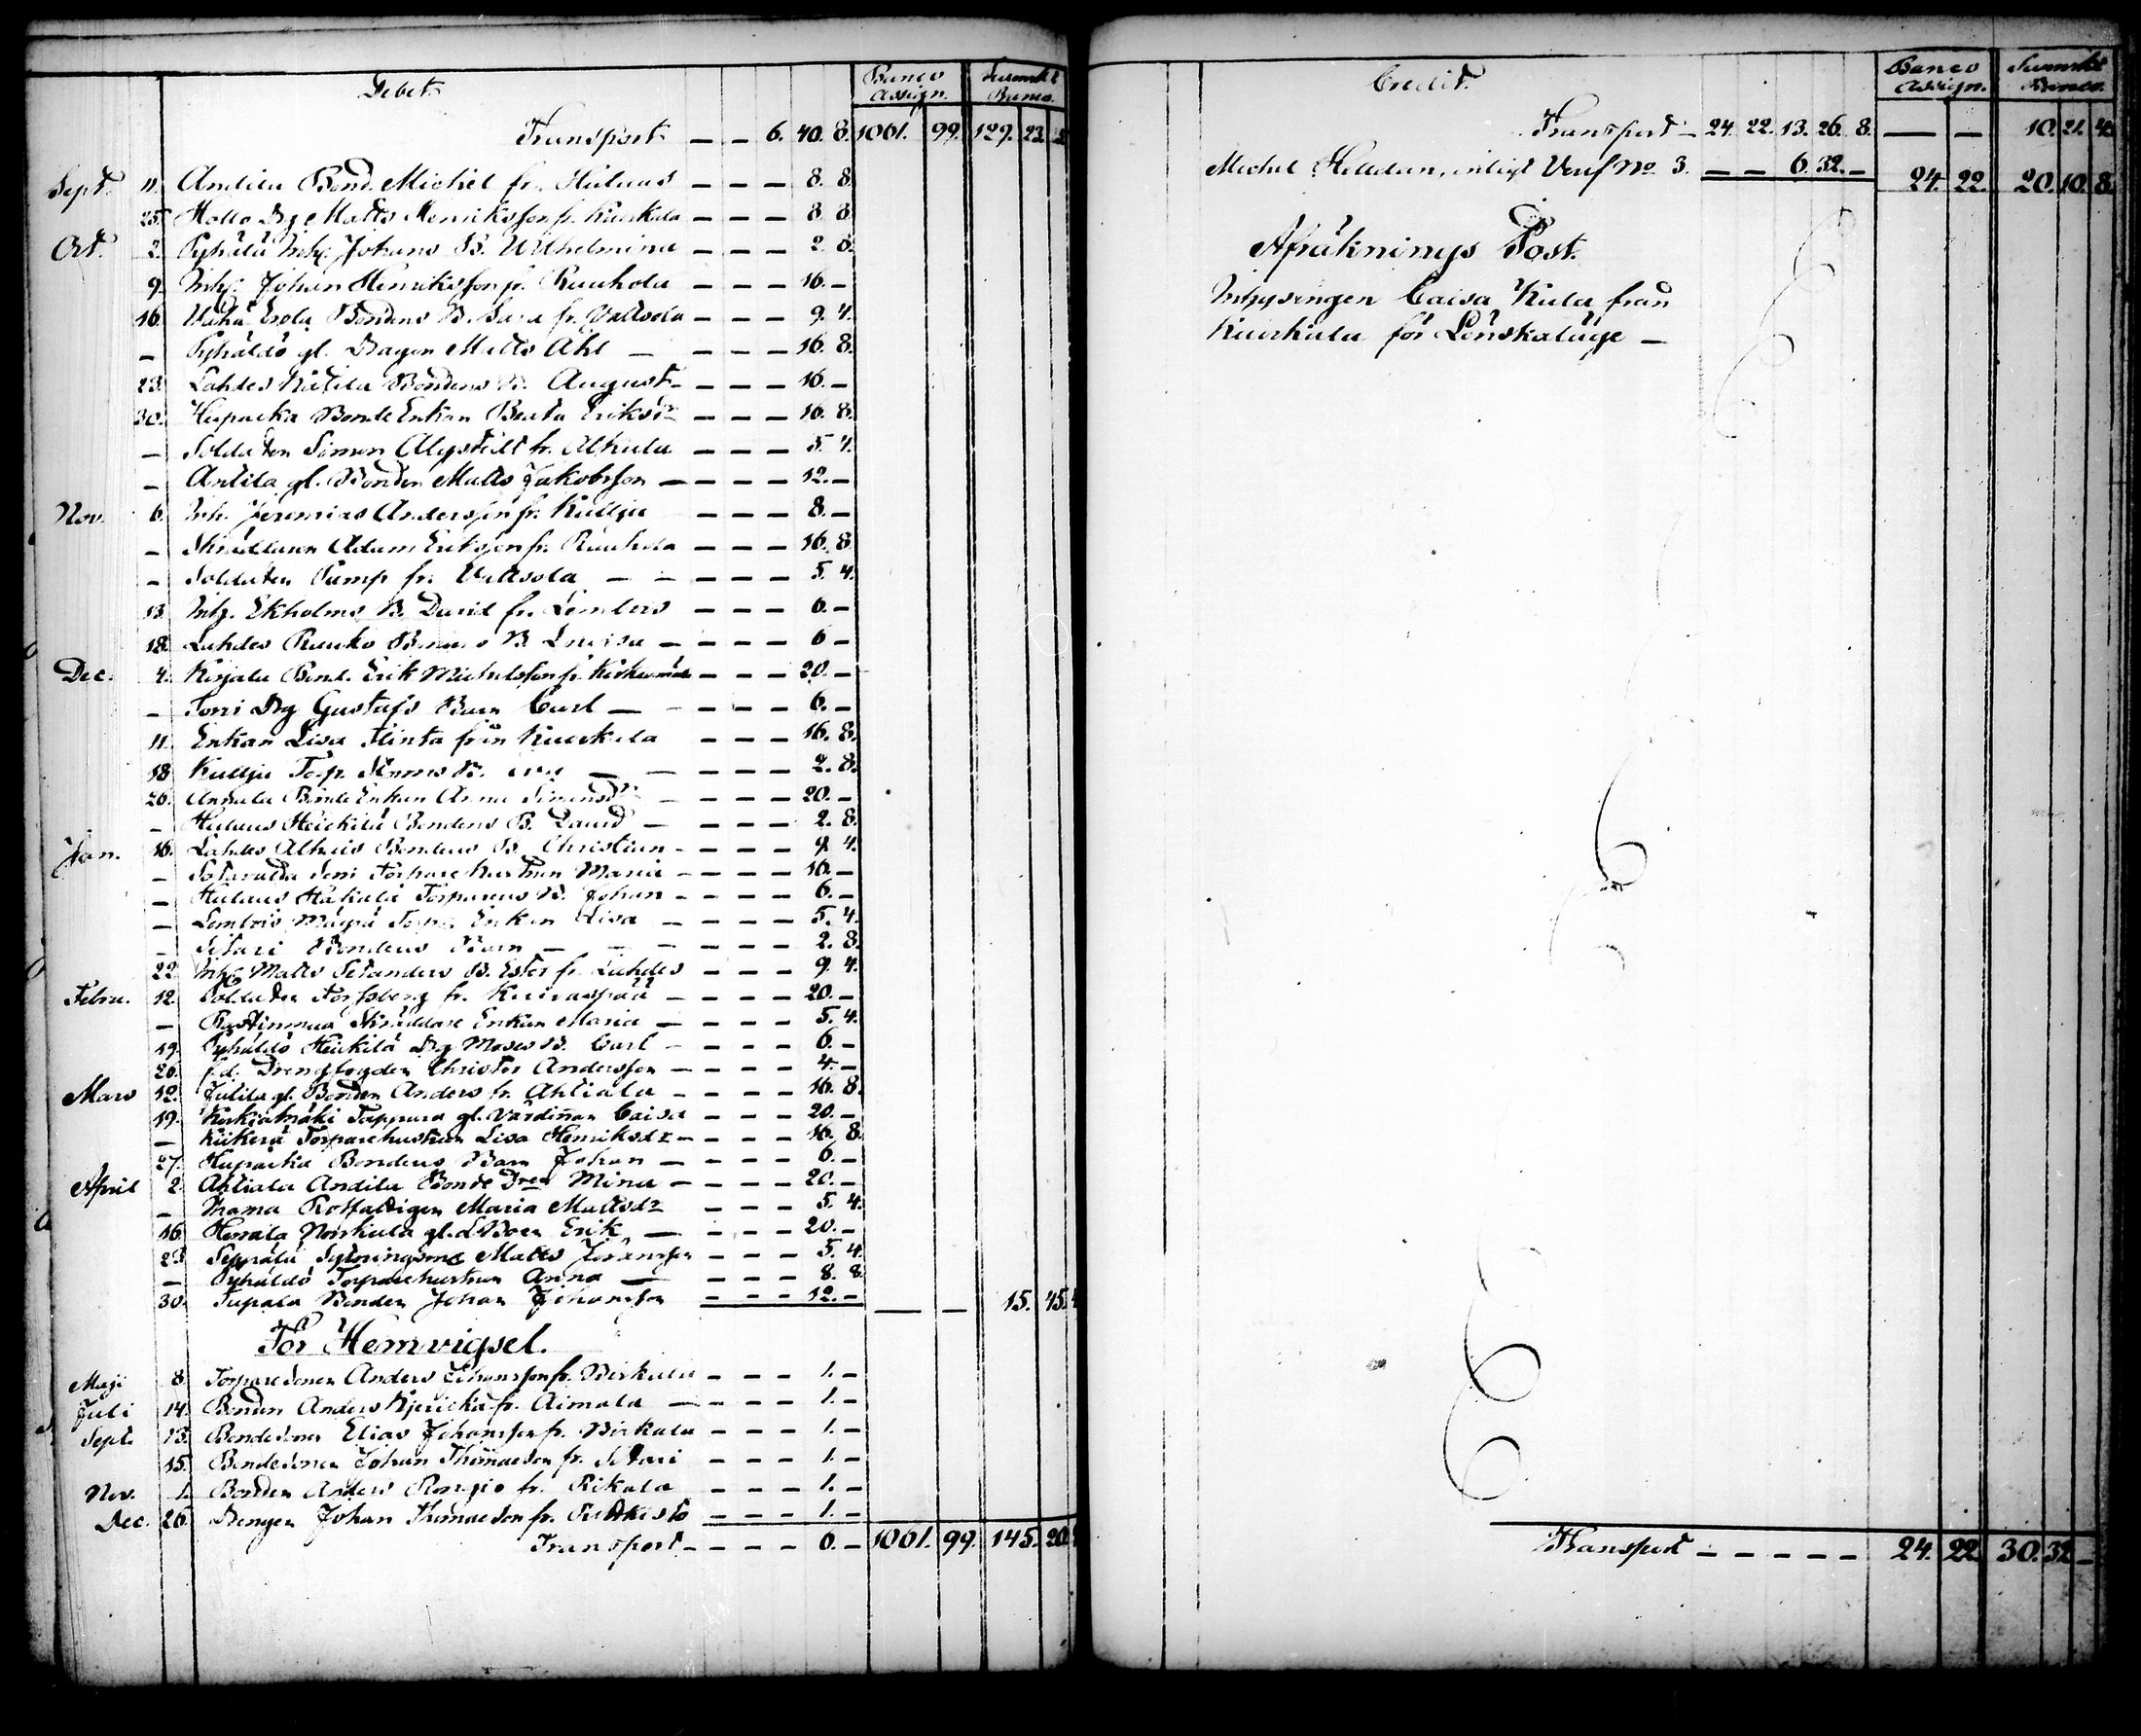 Debet Banco Assign. Svenskt Banco.
Transport — — 6. 40. 8. 1061. 99. 129. 23.
Sept. 11. Andila Bond. Michel fr. Hulaus — — — 8. 8.
25. Hollo Dg Matts Henriksson fr. Kuurkela — — — 8. 8.
Oct. 2. Pyhälä Inhy. Johans B. Wilhelmina — — — 2. 8.
9. Inhy. Johan Henriksson fr. Ruuhola — — — 16. —
16. Erola Bondens B. Sara fr. Valtsola — — — 9. 4.
— Pyhäldö gl. Dragon Matts Ahl — — — — 16. 8.
23. Lahdes Kätilä Bondens B. August — — — 16. —
30. Huparka Bonde Enkan Beata Eriksdr — — — 16. 8.
— Soldaten Simon Algstedt fr. Alkula — — — 5. 4.
— Antila gl. Bonden Matts Jakobsson — — — — 12. —
Nov. 6. Inh. Jeremias Andersson fr. Kullju — — — 8. —
— Skräddaren Adam Eriksson fr. Ruuhola — — — 16. 8.
— Soldaten Pump fr. Valtsola — — — — — 5. 4.
13. Inhy. Ekholms B. David fr. Lembois — — — 6. —
18. Lahdes Bondens B. Lovisa — — — — 6 —
Dec. 4. Kirjala Bond. Erik Michelsson fr. — — — 20. —
— Torri Dg Gustafs Barn Carl — — — — — 6. —
11. Enkan Lisa Flinta från Kuurkela — — — 16. 8.
18. Kullju Torp. B. — — — — — 2. 8.
26. Annala Bonde Enkan Anna Simonsdr — — — — 20. —
— Hulaus Heickilä Bondens B. David — — — — 2. 8.
Jan. 16. Lahdes Alhais Bondens B. Christian — — — — 9. 4.
— Sotavalta Torpare hustrun Maria — — — — 16. —
— Hulaus Hakala Torparens B. Johan — — — — 6. —
— Lembois Torp. Enkan Lisa — — — — 5. 4.
— Setari Bondens Barn — — — — — — 2. 8.
22. Inhy Matts Selanders B. Ester fr. Lahdes — — — 9. 4.
Febru. 12. Soldaten Forssberg fr. Kuivaspää — — — — 20. —
— Skräddare Enkan Maria — — — — 5. 4.
19. Pyhäldö Heickilä Dg Moses B. Carl — — — — 6. —
26. f.d. Drengfogden Christer Andersson — — — — 4. —
Mars 12. Julila gl. Bonden Anders fr. Ahtiala — — — — 16. 8.
19. Korkiamäki Tappara gl. Värdinan Caisa — — — 20. —
— Kiikerä Torparehustrun Lisa Henriksdr — — — — 16. 8.
27. Huparka Bondens Barn Johan — — — — 6. —
April 2. Ahtiala Andila Bonde Mina — — — — 20. —
— Rotfattigen Maria Mattsdr — — — 5. 4.
16. Herrala Norkula gl. Erik — — — — 20. —
23 Seppälä Sytningsme Matts Johansson — — — 5. 4.
— Pyhäldö Torparehustrun Anna — — — — 8. 8.
30. Tupala Bonden Johan Johansson — — — 12. — — — 15. 45.
För Hemvigsel.
Maji 8. Torparesonen Anders Johansson fr. Birkala — — — 1. —
Juli 14. Bonden Anders Kjericka fr. Aimala — — — — 1. —
Sept. 13. Bondesonen Elias Johansson fr. Birkala — — — 1. —
15. Bondesonen Johan Thomasson fr. Setari — — — 1. —
Nov. 1. Bonden Anders fr. Rikala — — — 1. —
Dec. 26. Drengen Johan Thomasson fr. — — — 1. —
Transport — — — — 0. — 1061. 99. 145. 20.
Credit. Banco Assign. Svenskt Banco.
Transport — 24. 22. 13. 26. 8. — — 10. 21. 4.
Michel Helldan, enligt Verif No. 3. — — 6. 32. — 24. 22. 20. 10. 8.
Afräknings Post.
Inhysingen Caisa Kula från
Kuurkala för Lönskaläge —
Transport — — — — — 24. 22 30. 32 —